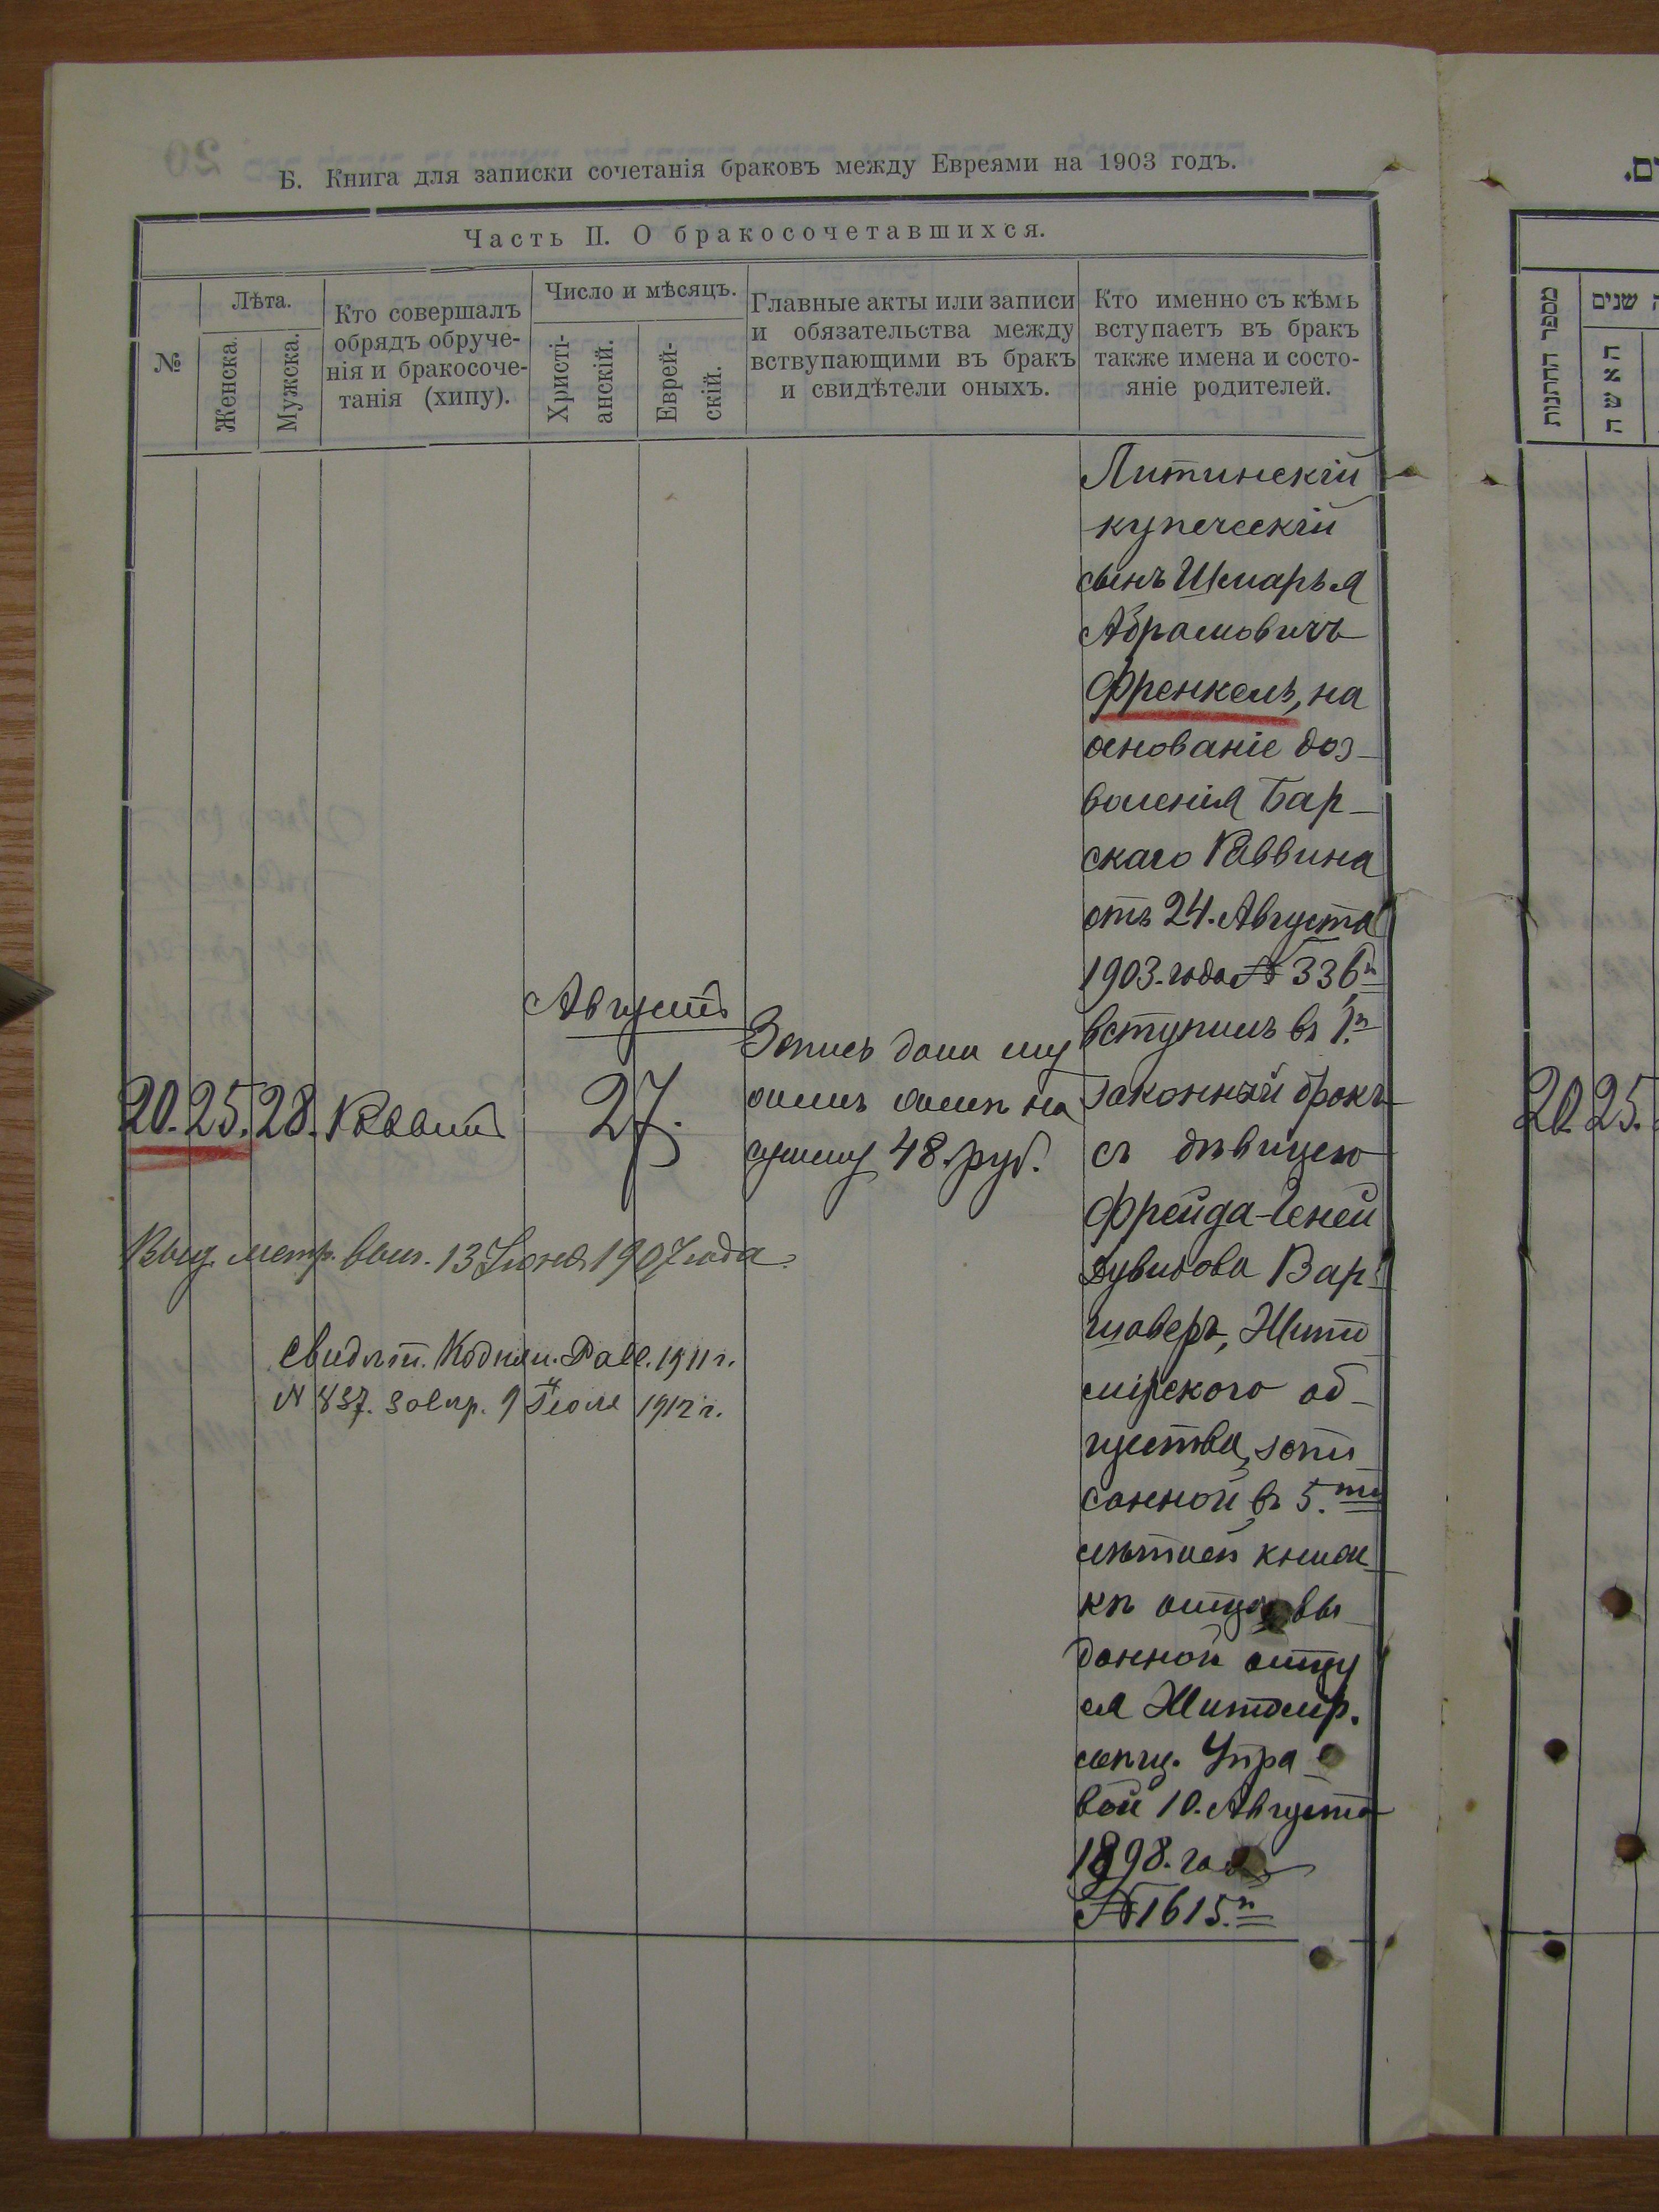 Б. Книга для записки сочетанія браковъ между Евреями на 1903 годъ.
Часть II. О бракосочетавшихся.
№
Лѣта.
Женска.
Мужска.
Кто совершалъ
обрядъ обруче-
нія и бракосоче-
танія (хипу).
Число и мѣсяцъ.
Христі-
анскій.
Еврей-
скій.
Главные акты или записи
и обязательства между
вствупающими въ бракъ
и свидѣтели оныхъ.
Кто именно съ кѣмъ
вступаетъ въ бракъ
также имена и состо-
яніе родителей.
20. 25. 28. Раввинъ
Августъ
27.
Запись дана му
жемъ женѣ на
сумму 48. руб.
Литинскій
купеческій
сынъ Шмарья
Абрамовичъ
Френкель, на
основаніе доз-
воленія Бар-
скаго Раввина
отъ 24. Августа
1903. года № 336
вступилъ въ 1.й
законный бракъ
съ дѣвицею
Фрейда-Геней
Дувидова Вар-
шаверъ, Жито
мірского об-
щества, запи
санной въ 5.ти
лѣтней книж
кѣ отца вы
данной отцу
ея Житомір.
мѣщ. Упра-
вой 10. Августа
1898. года
№ 1615.
Выд. метр. вып. 13 Іюня 1907 года.
Свидѣт. Раве. 1911 г.
№ 837. 9 Іюля 1912 г.
מספר החתנות
שנים
האשה
20. 25.